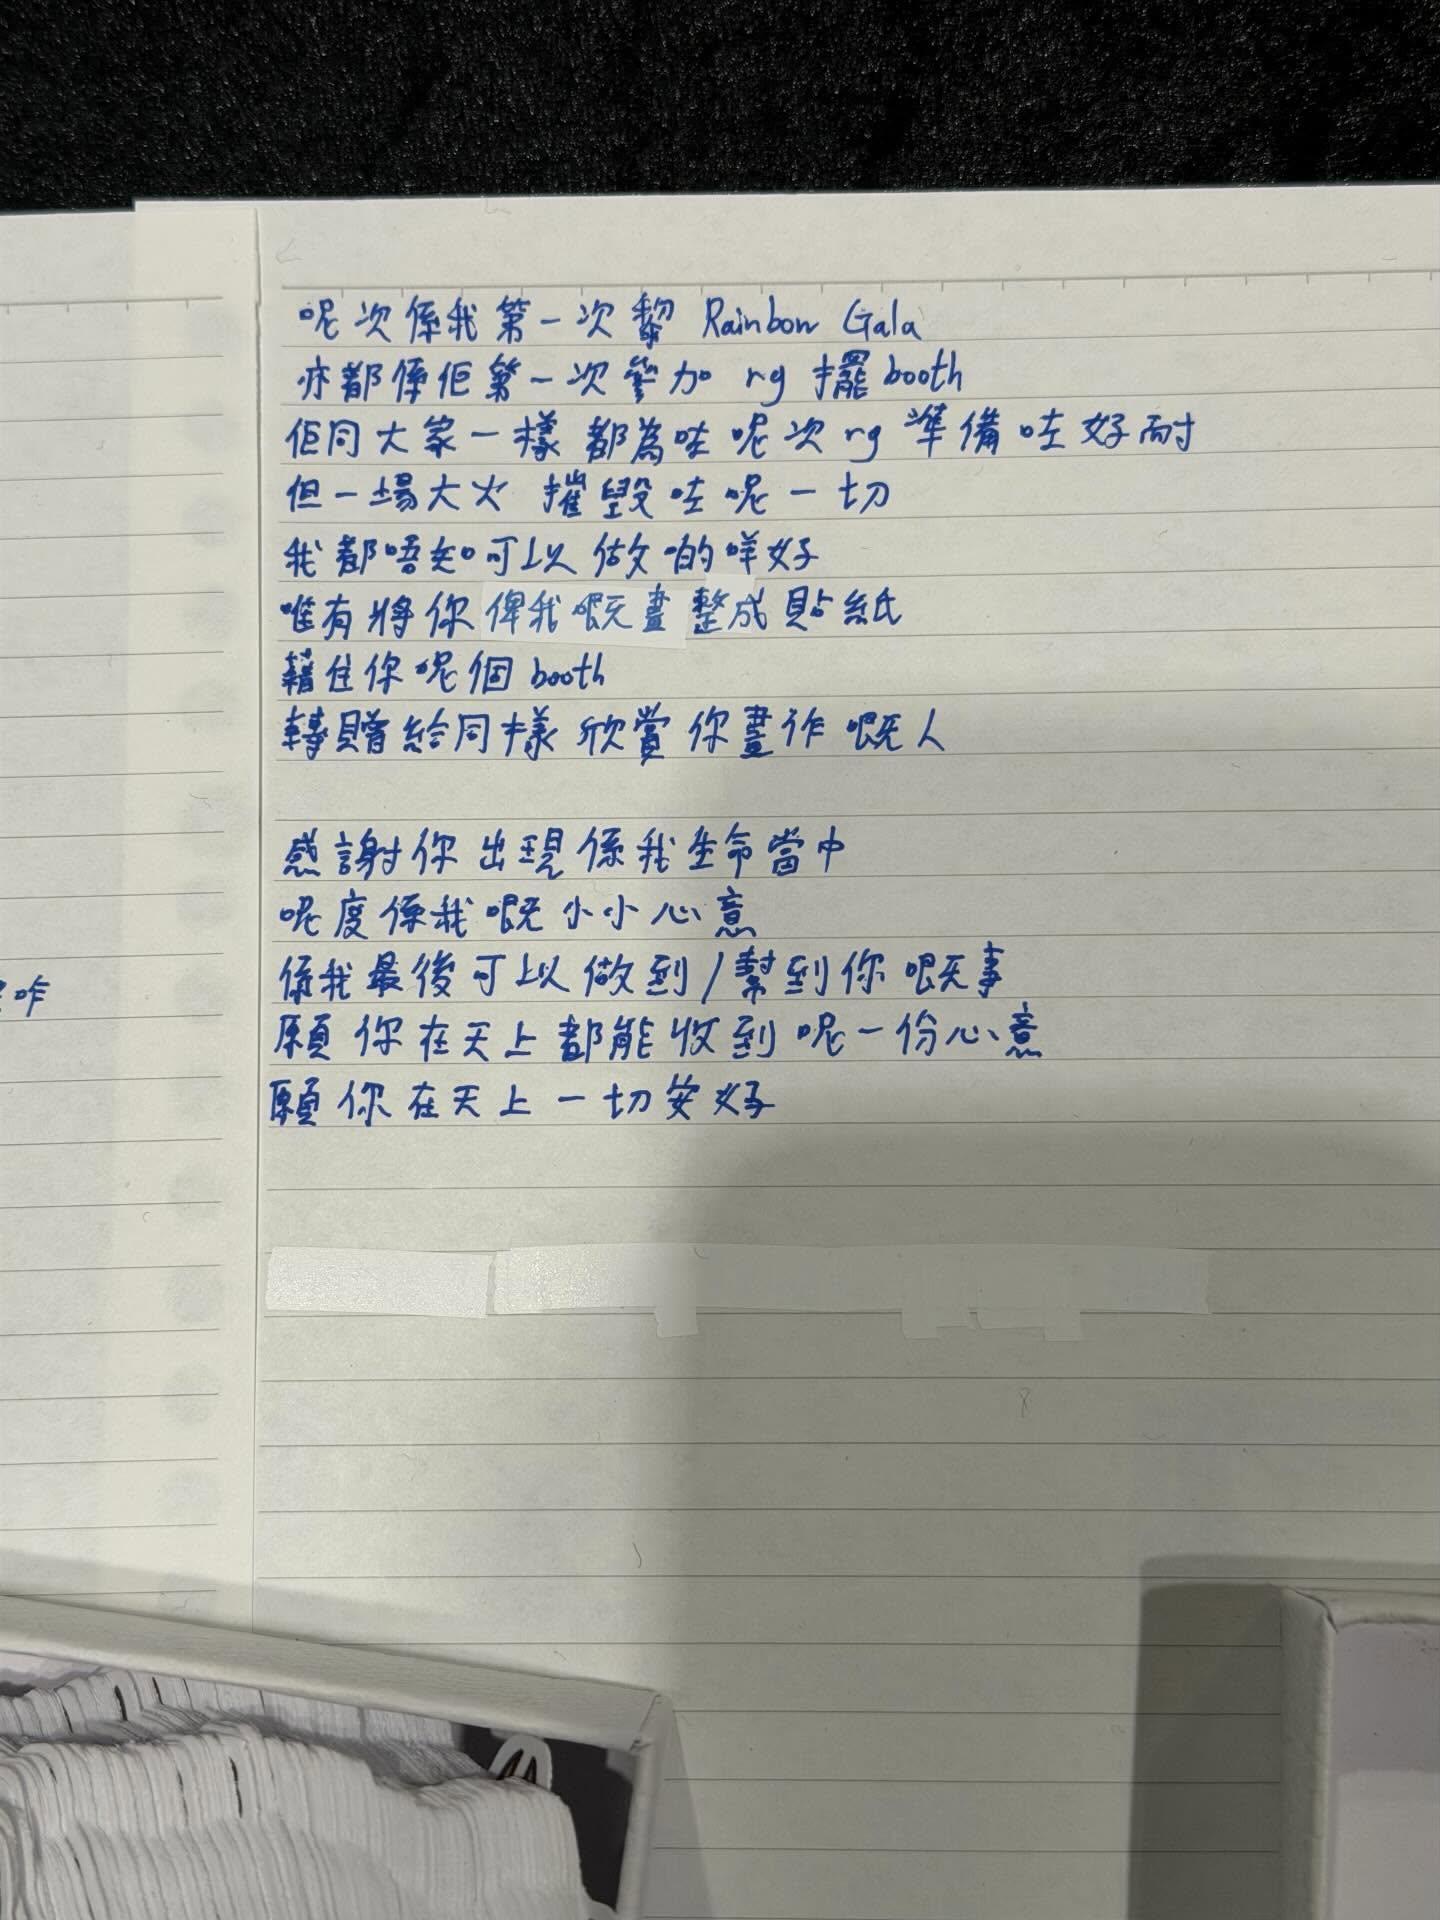 呢次係我第一次黎 Rainbow Gala
亦都係佢第一次參加 rg 擺 booth
佢同大家一樣都為咗呢次 rg 準備咗好耐
但一場大火 摧毀咗呢一切
我都唔知可以做啲咩好
唯有將你俾我嘅畫整成貼紙
藉住你呢個 booth
轉贈給同樣欣賞你畫作嘅人
感謝你出現係我生命當中
呢度係我嘅小小心意
係我最後可以做到/幫到你嘅事
願你在天上都能收到呢一份心意
願你在天上一切安好
咋